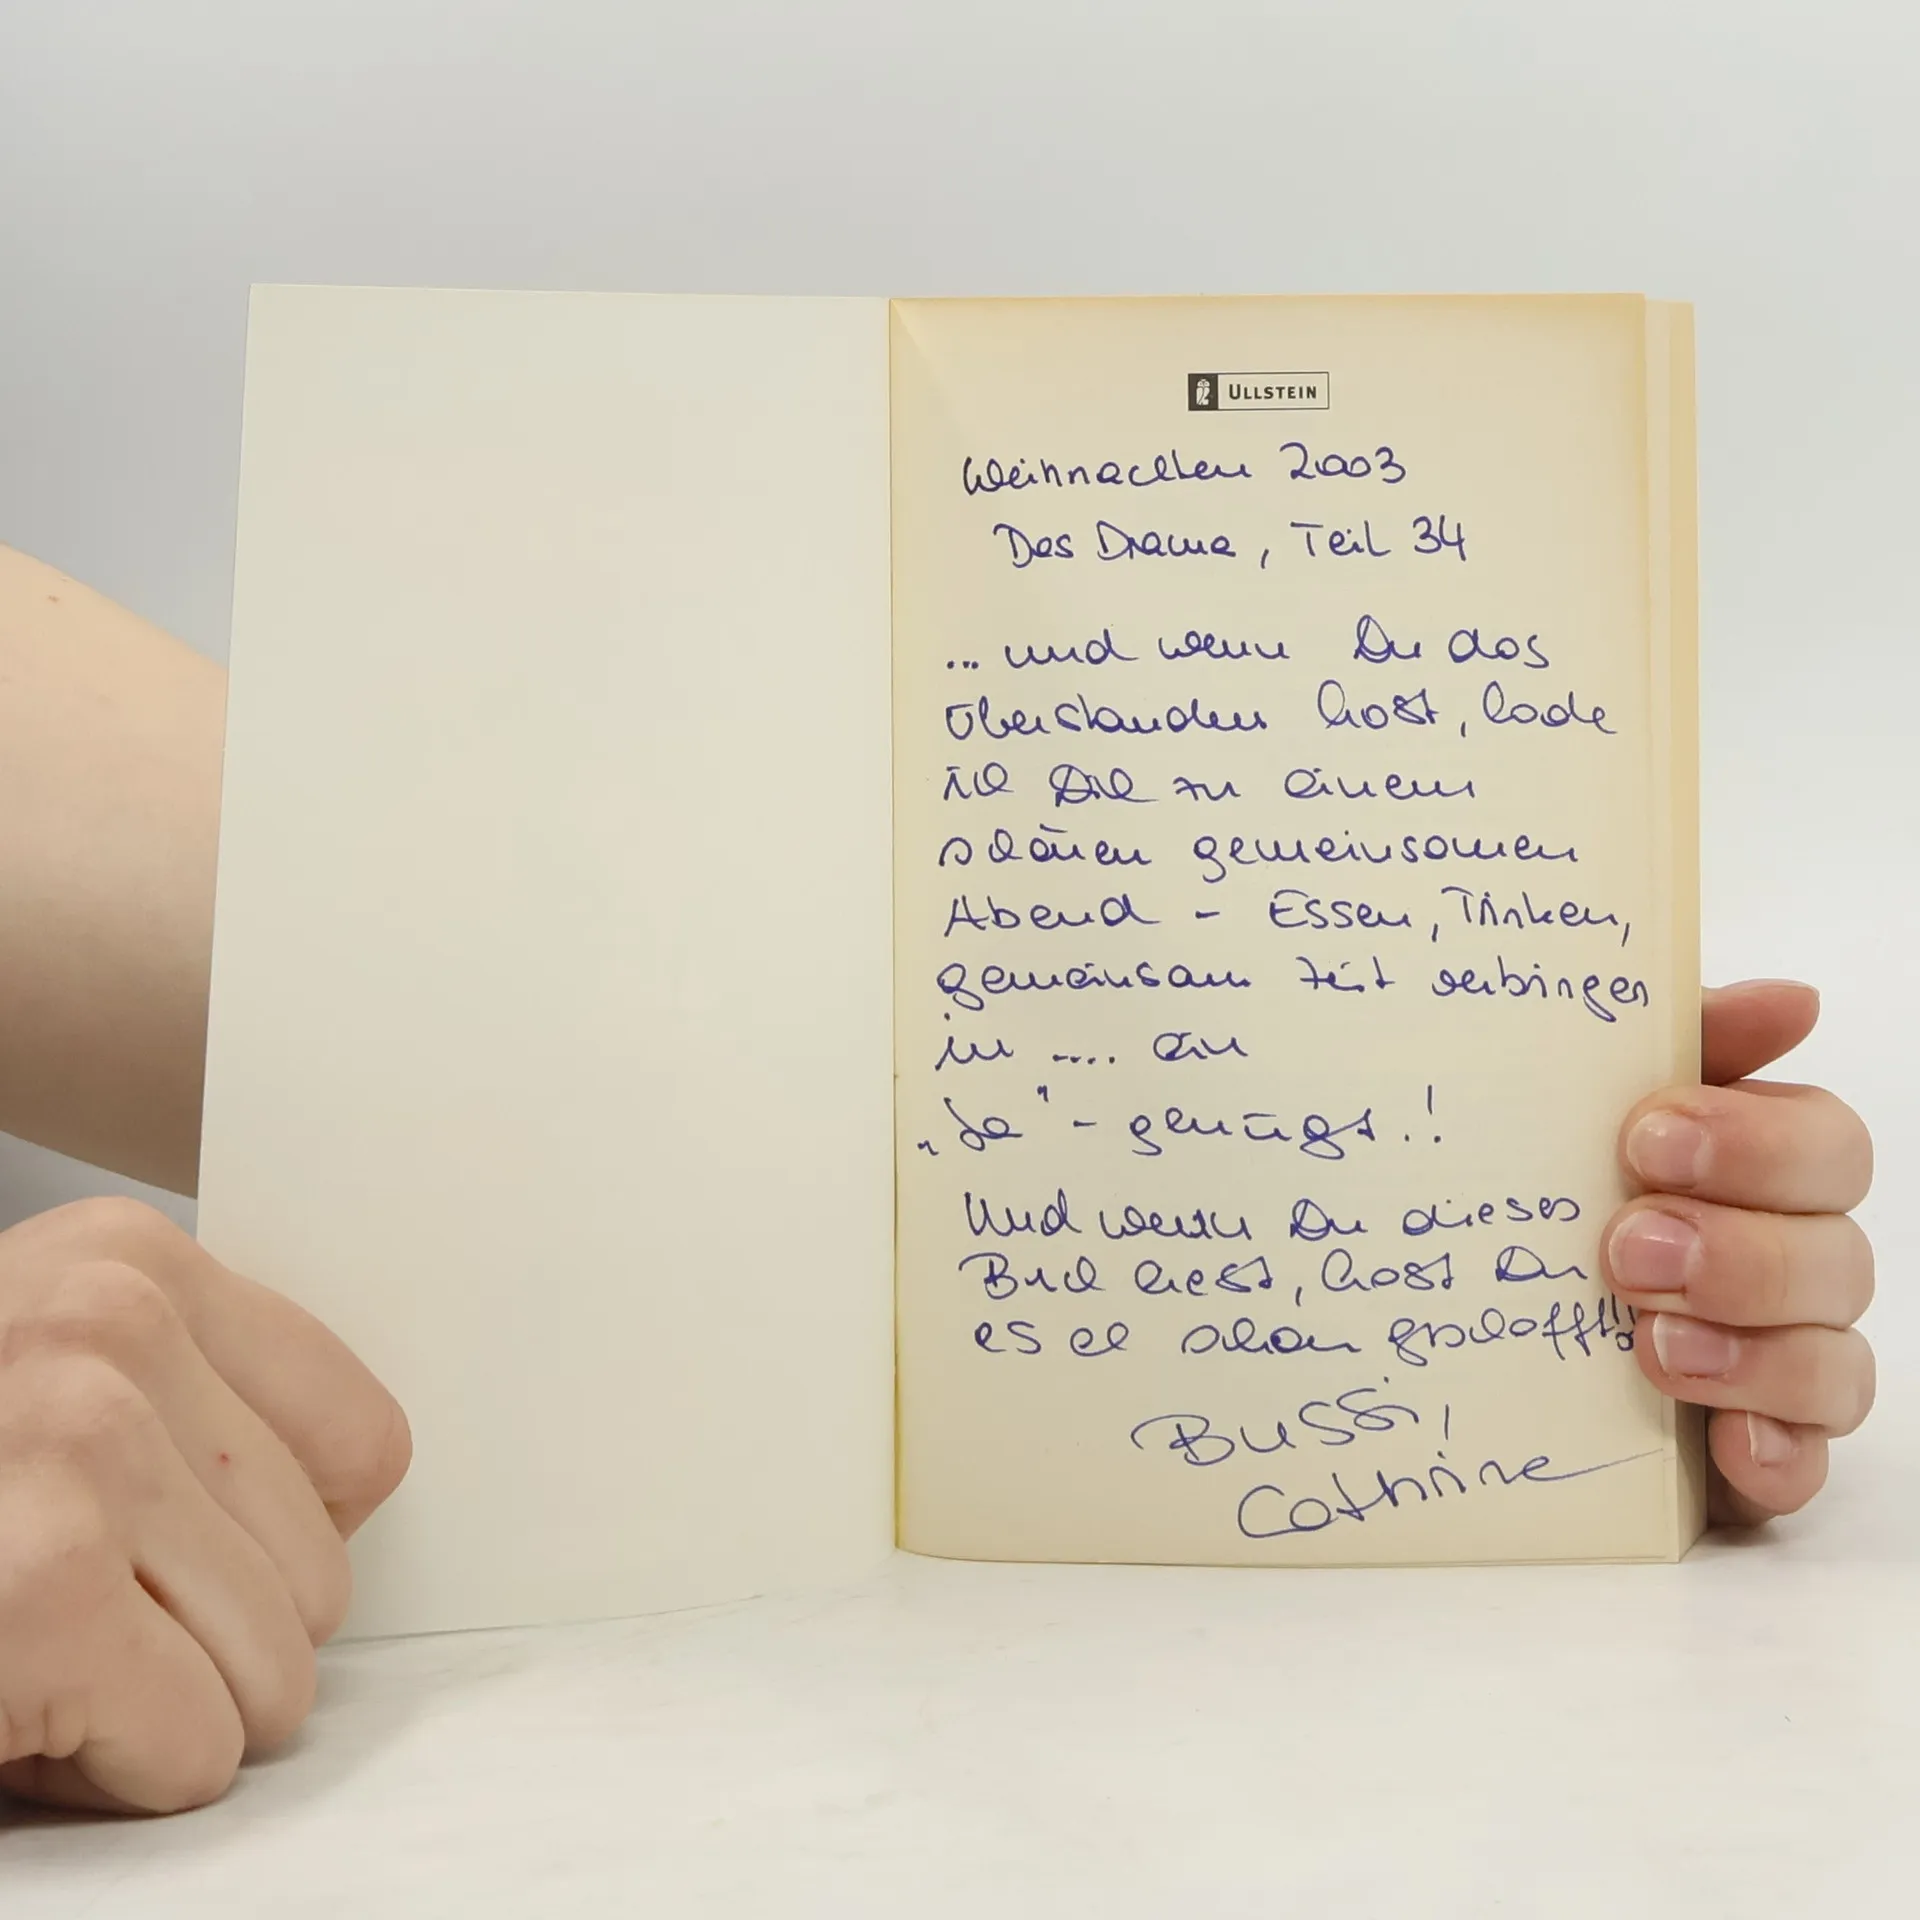 ULLSTEIN
Weihnachten 2003
Das Drama, Teil 34
... und wenn Du das
überstanden hast, lade
ich Dich zu einem
schönen gemeinsamen
Abend - Essen, Trinken,
gemeinsam Zeit verbringen
in .... ein
„Ja" - genügt.!
Und wenn Du dieses
Buch liest, hast Du
es eh schon geschafft!!
Bussi,
Cathrine